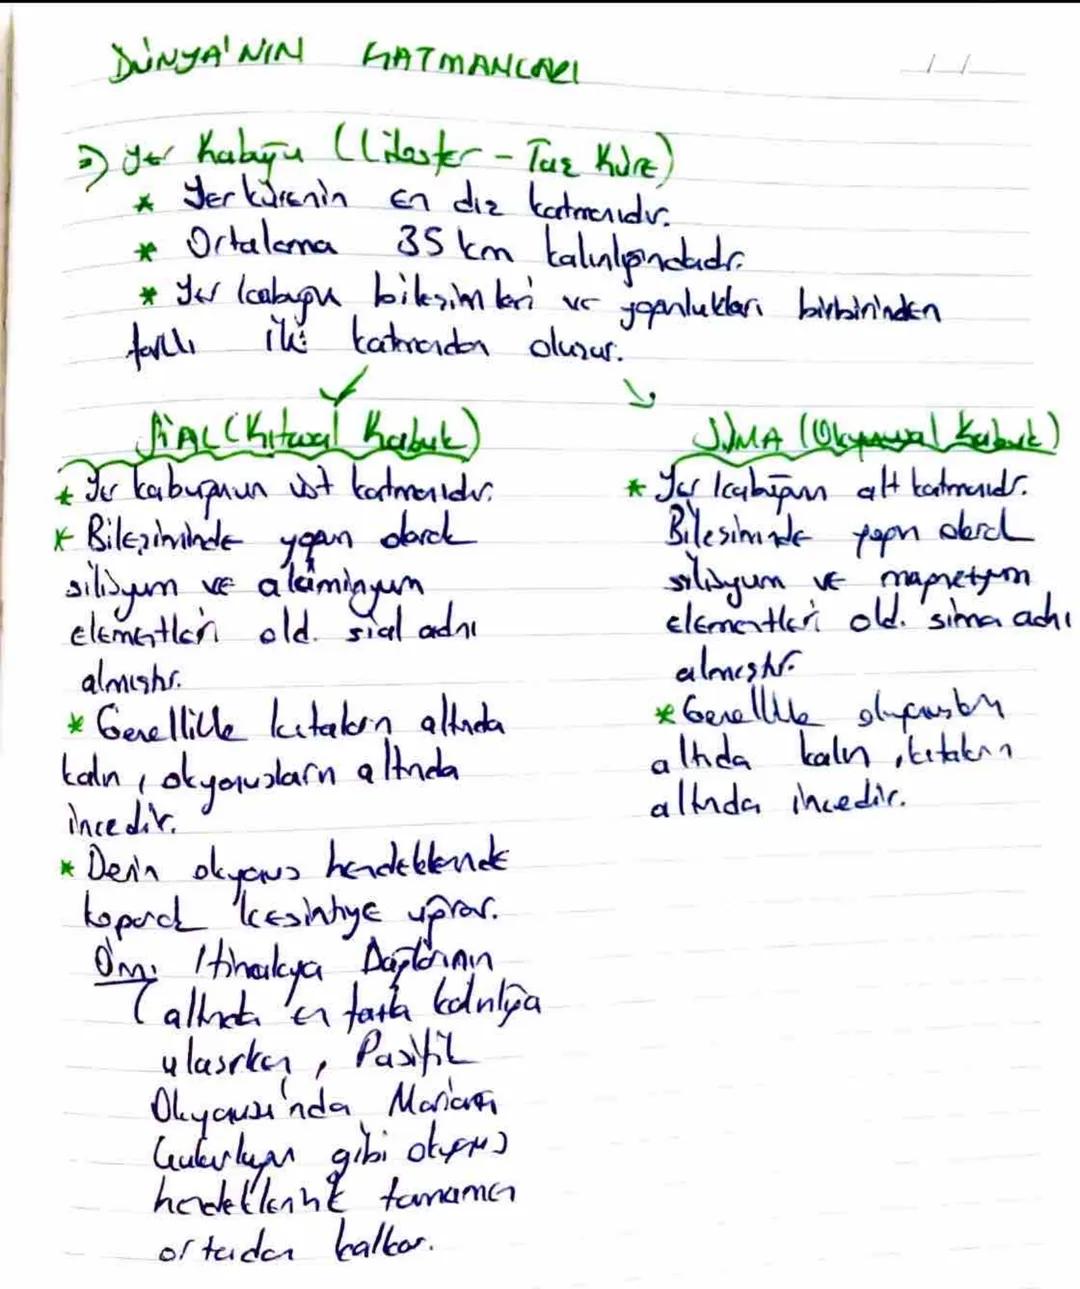 DÜNYA'NIN KATMANLARI
Yer Kabuğu (Litosfer - Taş Küre)
* Yer kürenin en dış katmanıdır.
* Ortalama 35 km kalınlığındadır.
* Yer kabuğu bileşimleri ve yoğunlukları birbirinden
farklı iki katmandan oluşur.
SİAL (Kıtasal Kabuk)
* Yer kabuğunun üst katmanıdır.
* Bileşiminde yoğun olarak
silisyum ve alüminyum
elementleri old. sial adını
almıştır.
* Genellikle kıtaların altında
kalın, okyanusların altında
incedir.
* Derin okyanus hendeklerinde
koparak kesintiye uğrar.
Örn: Himalaya Dağlarının
altında en fazla kalınlığa
ulaşırken, Pasifik
Okyanusu'nda Mariana
Çukurluğu gibi okyanus
hendeklerinde tamamen
ortadan kalkar.
SİMA (Okyanusal Kabuk)
* Yer kabuğunun alt katmanıdır.
Bileşiminde yoğun olarak
silisyum ve magnezyum
elementleri old. sima adını
almıştır.
* Genellikle okyanusların
altında kalın, kıtaların
altında incedir.